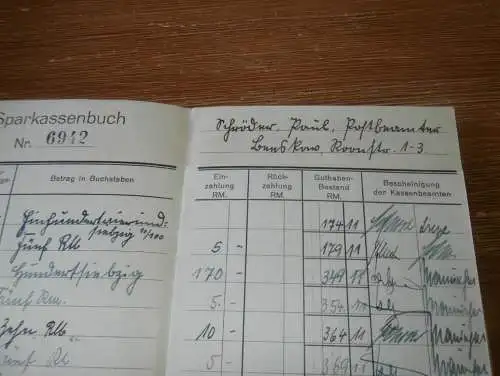 Sparkassenbuch
Nr. 6942
Schröder, Paul, Postbeamter
Beeskow, Roonstr. 1-3
Betrag in Buchstaben
Ein-
zahlung
RM.
Rück-
zahlung
RM.
Guthaben-
Bestand
RM.
Bescheinigung
der Kassenbeamten
Einhundertvierund-
siebzig 11/100
174 11
Fünf RM
5 - 179 11
Hundertsiebzig
170 - 349 11
Fünf Rm.
5 - 354 11
Zehn RM
10 - 364 11
Fünf RM
5 - 369 11